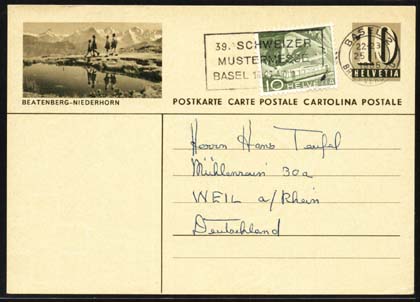 39. SCHWEIZER
MUSTERMESSE
BASEL
10
HELVETIA
BASEL
22-23
25
10
HELVETIA
BEATENBERG-NIEDERHORN
POSTKARTE CARTE POSTALE CARTOLINA POSTALE
Herrn Hans Teufel
Mühlenrain 30a
WEIL a/Rhein
Deutschland